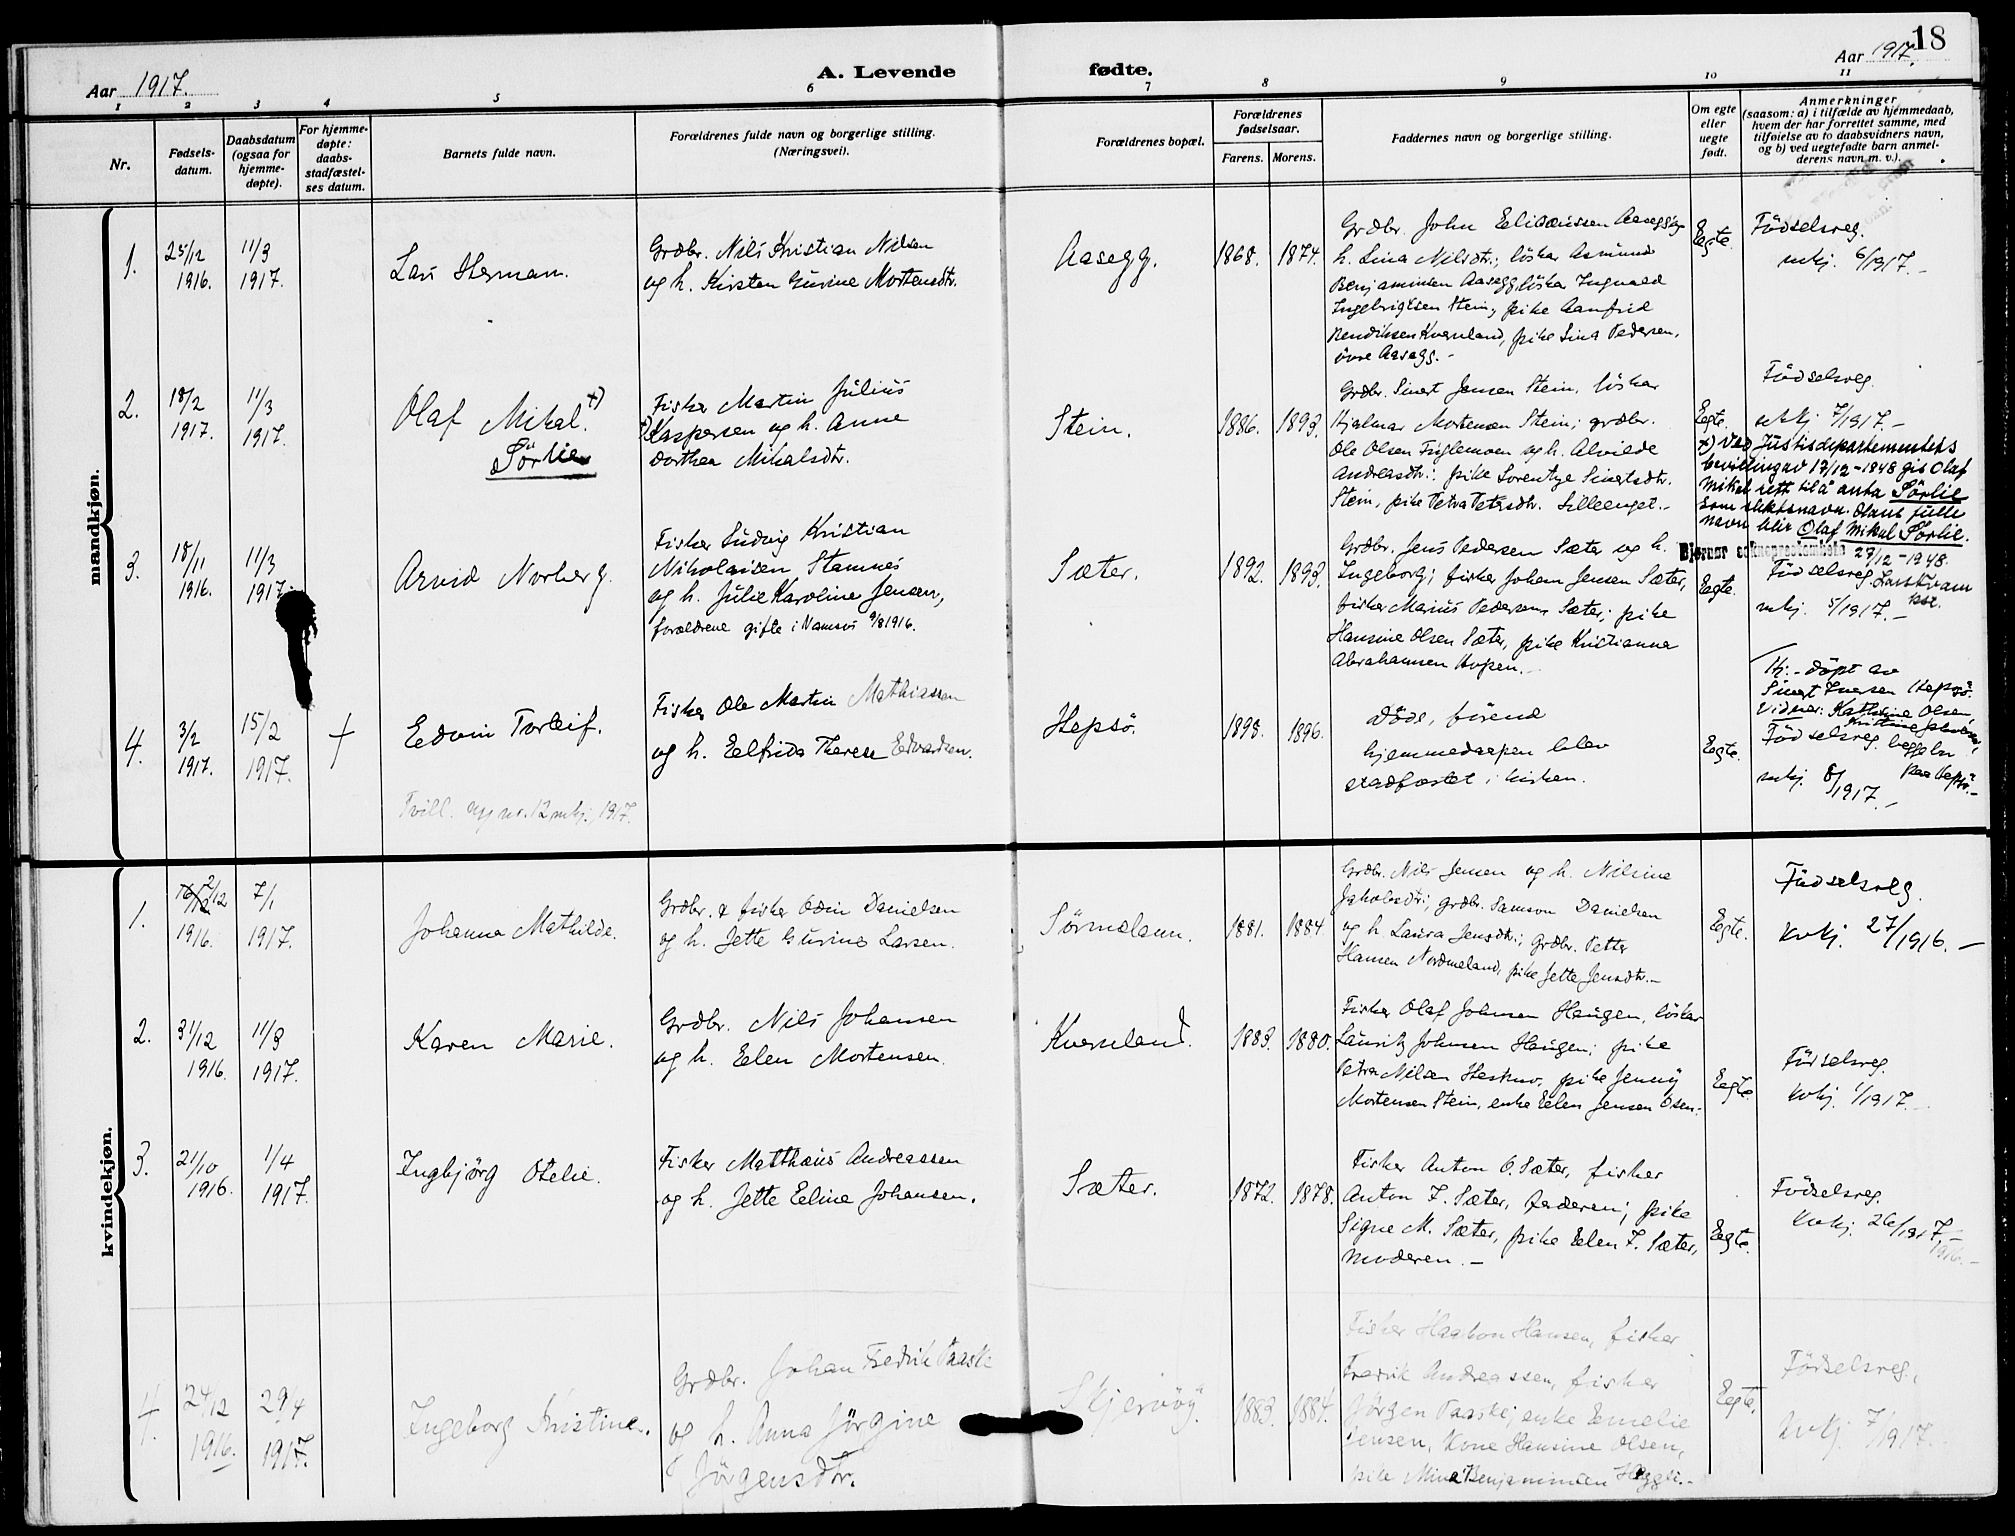 18
Aar 1917.
A. Levende
fødte.
Aar 1917.
1
2
3
4
5
6
7
8
9
10
11
Nr.
Fødsels-
datum.
Daabsdatum
(ogsaa for
hjemme-
døpte).
For hjemme-
døpte:
daabs-
stadfæstel-
ses datum.
Barnets fulde navn.
Forældrenes fulde navn og borgerlige stilling.
(Næringsvei).
Forældrenes bopæl.
Forældrenes
fødselsaar.
Farens.
Morens.
Faddernes navn og borgerlige stilling.
Om egte
eller
uegte
født.
Anmerkninger
(saasom: a) i tilfælde av hjemmedaab,
hvem der har forrettet samme, med
tilføielse av to daabsvidners navn,
og b) ved uegtefødte barn anmel-
derens navn m. v.).
mandkjøn.
1.
25/12
1916.
11/3
1917.
Lars Herman.
Grdbr. Nils Kristian Nilsen
og h. Kirsten Gurine Mortensdtr.
Aasegg.
1868.
1874.
Grdbr. John Elisæussen Aasegg og
h. Lina Nilsdtr.; löskar Asmund
Benjaminsen Aasegg, löskar Ingvald
Ingebrigtsen Stein, pike Aamfrid
Hendriksen Kvernland, pike Lina Pedersen,
övre Aasegg. -
Egte.
Födselsreg.
mkj. 6/1917. -
2.
18/2
1917.
11/3
1917.
Olaf Mikal. +)
Sörlie
Fisker Martin Julius
Kaspersen og h. Anne
Dorthea Mikalsdtr.
Stein.
1886.
1893.
Grdbr. Sivert Jensen Stein, löskar
Hjalmar Mortensen Stein; grdbr.
Ole Olsen Fuglemoen og h. Alvilde
Andreasdtr.; pike Lorentze Sivertsdtr.
Stein, pike Petra Petersdtr. Lilleenget. -
Egte.
Födselsreg.
mkj. 7/1917. -
+) Ved Justisdepartementets
bevilling av 13/12 - 1948 gis Olaf
Mikal rett til å anta Sörlie
som slektsnavn. Hans fulle
navn blir Olaf Mikal Sörlie.
Bjørnør sokneprestembete 29/12 - 1948.
Lars Kvam
3.
18/11
1916.
11/3
1917.
Arvid Norberg.
Fisker Ludvig Kristian
Nikolaisen Stamnes
og h. Julie Karoline Jensen,
forældrene gifte i Namsos 9/8 1916.
Sæter.
1892.
1893.
Grdbr. Jens Pedersen Sæter og h.
Ingeborg; fisker Johan Jensen Sæter,
fisker Marius Pedersen Sæter; pike
Hansine Olsen Sæter, pike Kristianna
Abrahamsen Hopen. -
Egte.
Födselsreg.
mkj. 5/1917. -
4.
3/2
1917.
15/2
1917.
+
Edvin Torleif.
Tvill. nr. 12 mkj., 1917.
Fisker Ole Martin Mathiassen
og h. Elfrida Therese Edvardsen.
Hepsö.
1898.
1896.
Döde, förend
hjemmedaapen blev
stadfæstet i kirken.
Egte.
Hj.-döpt av
Sivert Iversen Hepsö.
Vidner: Kathrine Olsen,
Kristine
Födselsreg. begge
paa Hepsö. -
mkj. 8/1917. -
kvindekjøn.
1.
2/12
1916.
7/1
1917.
Johanna Mathilde.
Grdbr. & fisker Odin Danielsen
og h. Jette Gurine Larsen.
Sörmeland.
1881.
1884
Grdbr. Nils Jensen og h. Nilsine
Jakobsdtr.; grdbr. Samson Danielsen
og h. Laura Jensdtr.; grdbr. Petter
Hansen Nordmeland, pike Jette Jensdtr. -
Egte.
Födselsreg.
kvkj. 27/1916. -
2.
31/12
1916.
11/3
1917.
Karen Marie.
Grdbr. Nils Johansen
og h. Elen Mortensen.
Kvernland.
1883.
1880.
Fisker Olaf Johnsen Haugen, löskar
Lauritz Johnsen Haugen; pike
Petra Nilsen, pike Jenny
Mortensen Stein, enke Elen Jensen Osen.
Egte.
Födselsreg.
kvkj. 1/1917. -
3.
21/10
1916.
1/4
1917.
Ingbjörg Otelie.
Fisker Matthæus Andreassen
og h. Jette Eline Johansen.
Sæter.
1872.
1878.
Fisker Anton O. Sæter, fisker
Anton J. Sæter, faderen; pike
Signe M. Sæter, pike Elen J. Sæter,
moderen. -
Egte.
Födselsreg.
kvkj. 26/1917. -
1916. -
4.
24/12
1916.
29/4
1917.
Ingeborg Kristine.
Grdbr. Johan Fredrik Paaske
og h. Anna Jörgine
Jörgensdtr.
Skjervöy.
1883.
1884.
Fisker Haakon Hansen, fisker
Fredrik Andreassen, fisker
Jörgen Paaske; enke Emelie
Jensen, kone Hansine Olsen,
pike Mina Benjaminsen
Egte.
Födselsreg.,
kvkj. 7/1917. -